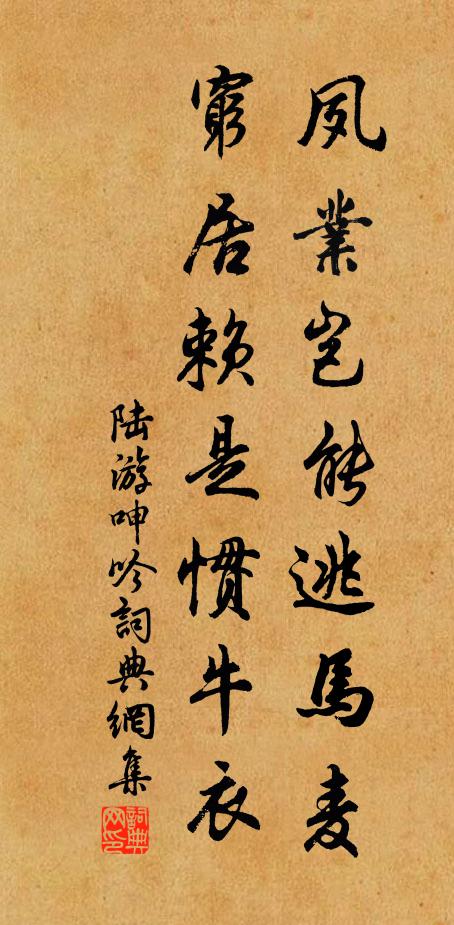 夙業豈能逃馬麦
窮居賴是慣牛衣
陆游呻吟詞典網集
詞典网印